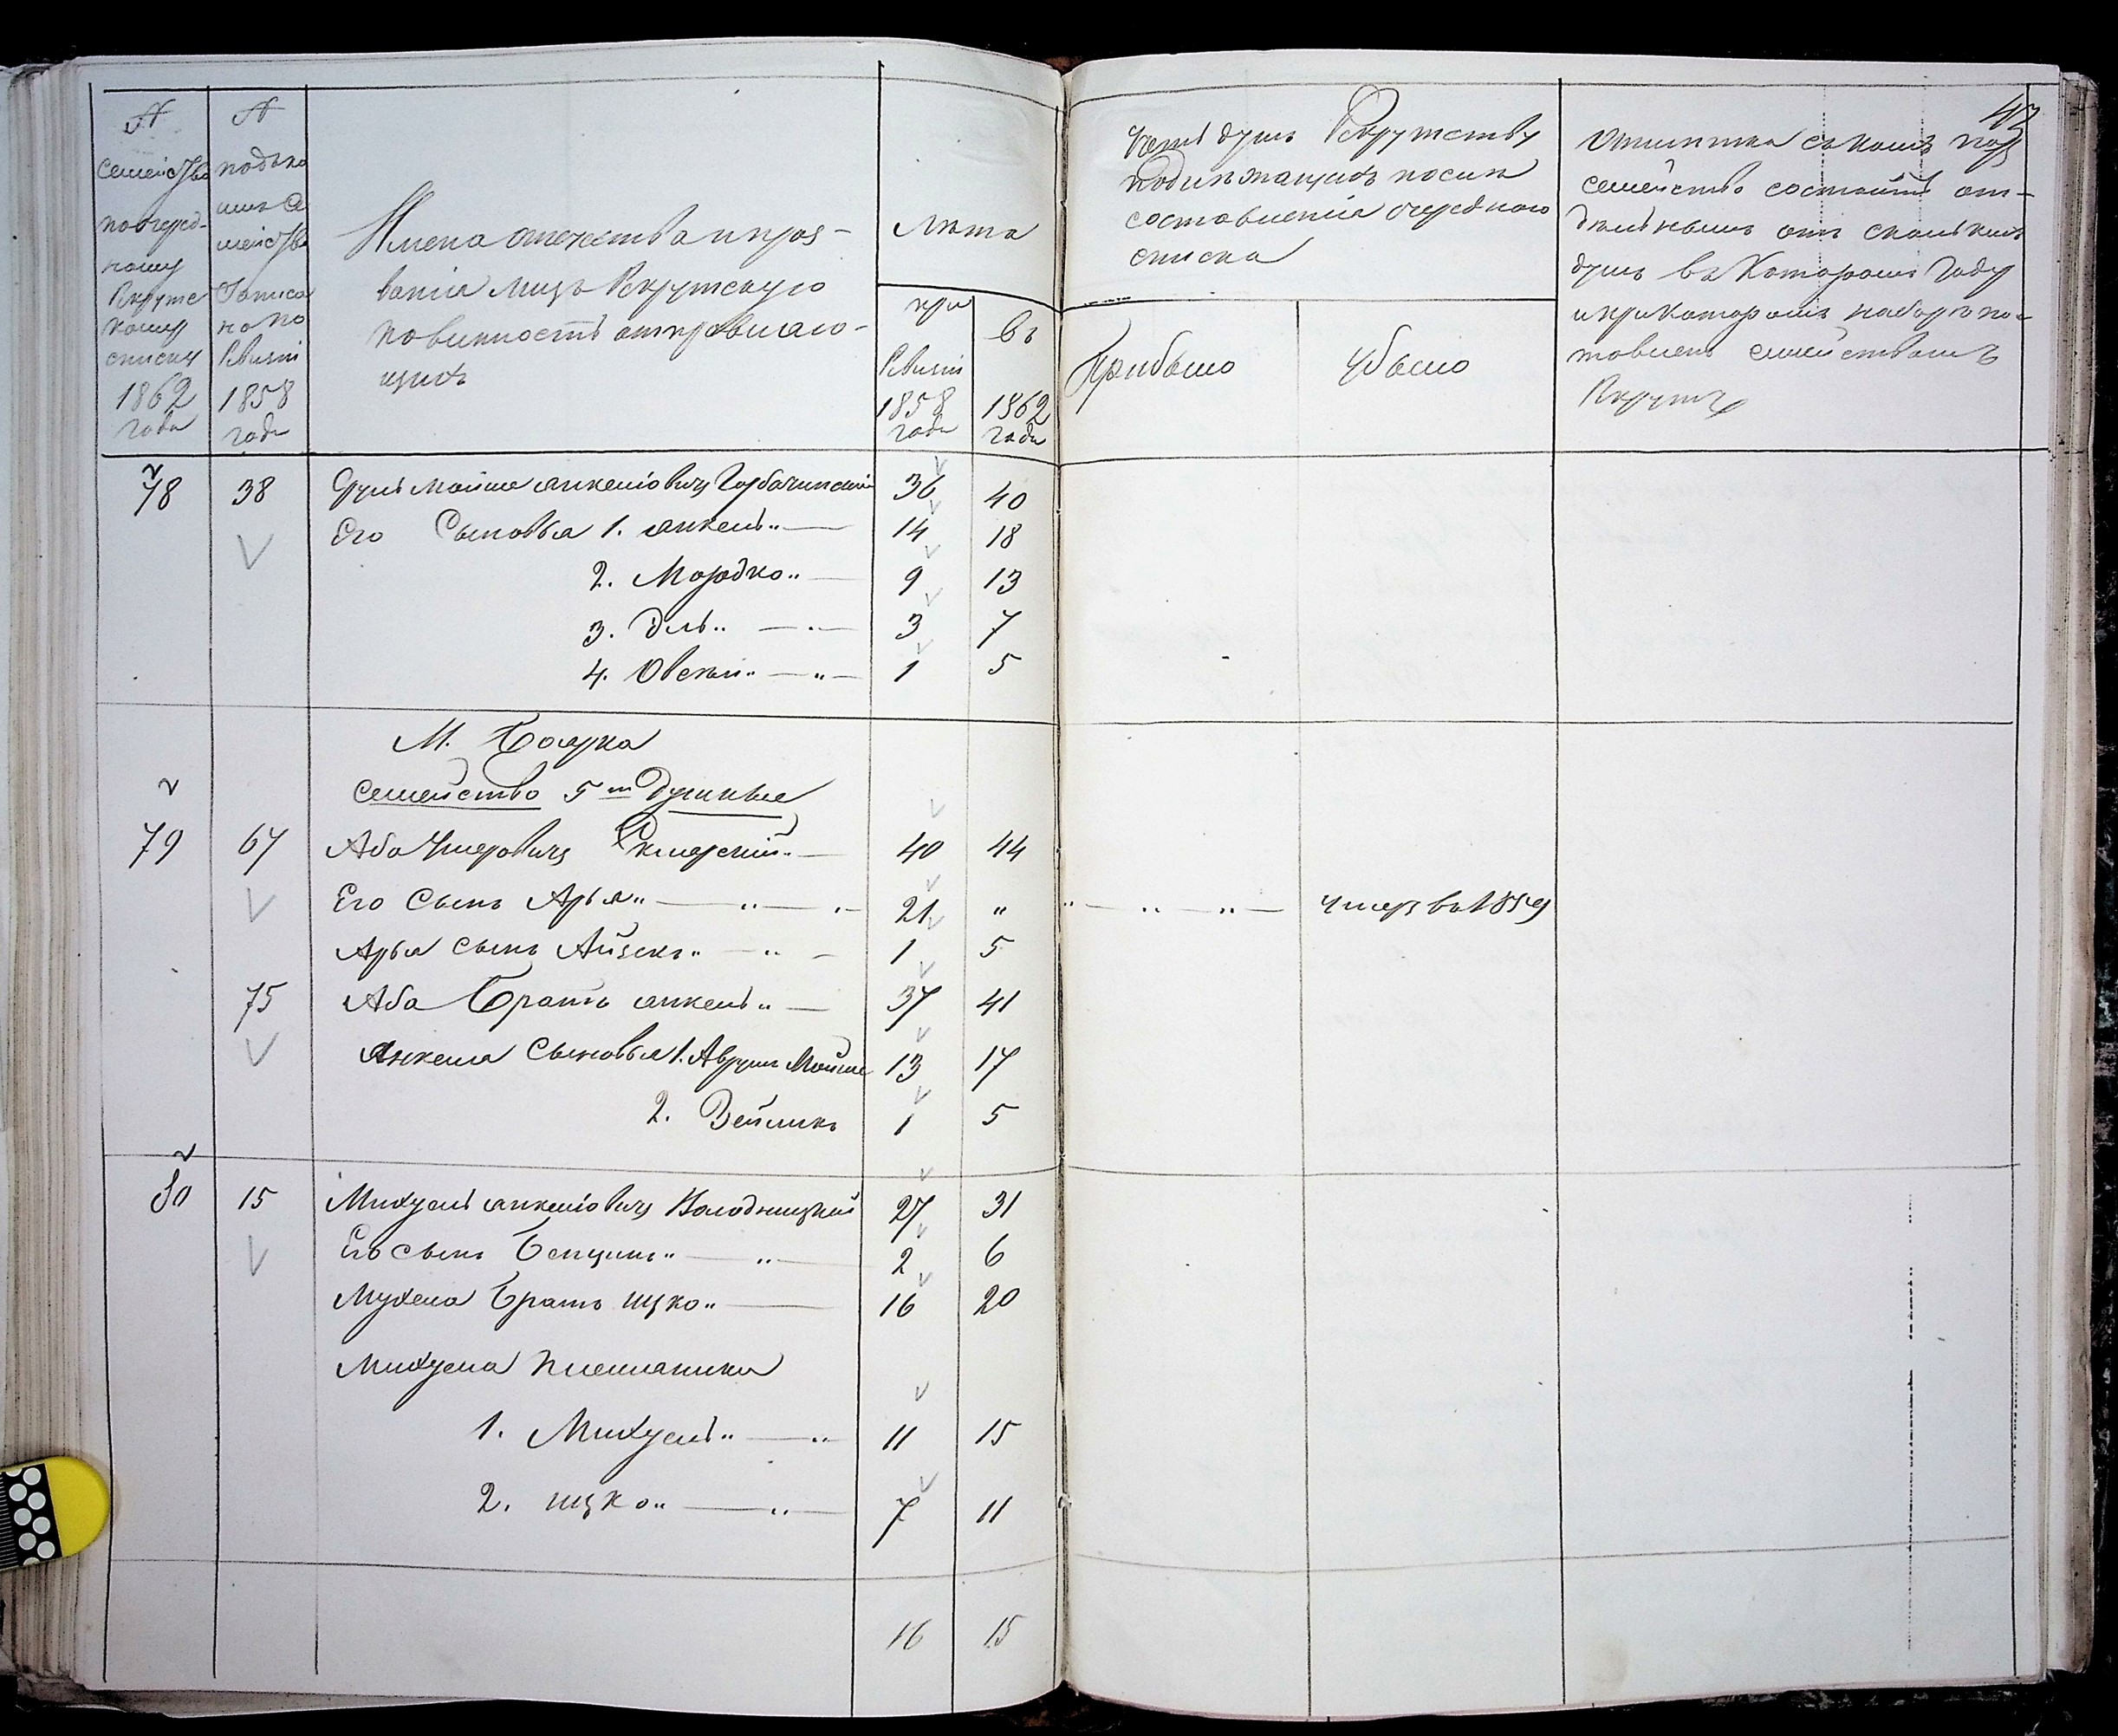 43
№ семейства по очередному Рекрутскому списку 1862 года
№ под коим семейство записано по Ревизии 1858 года
Имена отечества и проз-
вания лиц Рекрутскую
повинность отправляю-
щихъ
Лѣта
при Ревизіи 1858 года
въ 1862 году
душъ Рекрутству
подлежащихъ послѣ
составленія очереднаго
списка
Прибыло
Убыло
Отмѣтка съ коихъ поръ
семейство состоитъ от-
дѣльнымъ отъ сколькихъ
душъ въ Которомъ Году
и при которомъ наборѣ по-
ставленъ семействомъ
Рекрутъ
78 38 Срулъ Мойше Янкеліовичъ Горбачинскій 36 40
Его Сыновья 1. Янкель 14 18
2. Мордко 9 13
3. Эль 3 7
4. Овсѣй 1 5
М. Боярка
Семейство 5ти Душные
79 67 Аба 40 44
Его Сынъ Арья 21 " умеръ въ 1859
Арья сынъ Айзекъ 1 5
75 Аба Братъ Янкель 37 41
Янкеля Сыновья 1. Аврумъ Мойше 13 17
2. Зейликъ 1 5
80 15 Михуель Янкеліовичъ Володницкій 27 31
Его сынъ Бенціонъ 2 6
Мухеля Братъ Ицко 16 20
Михуеля племянники
1. Михуель 11 15
2. Ицко 7 11
16 15